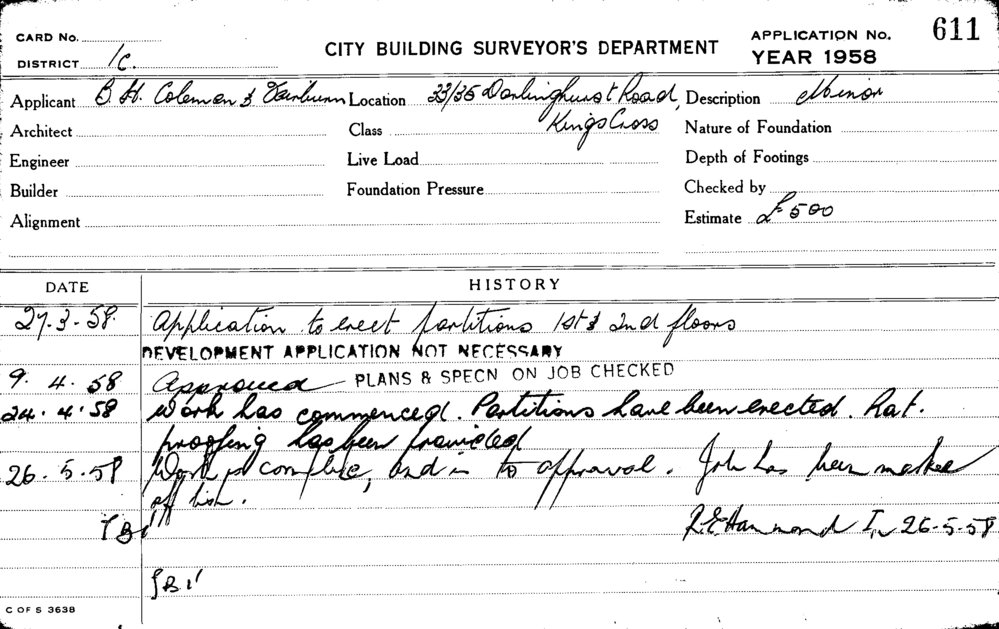 CARD No. CITY BUILDING SURVEYOR'S DEPARTMENT APPLICATION No. 611
DISTRICT 1c. YEAR 1958
Applicant B. H. Coleman & Fairburn Location 33/35 Darlinghurst Road, Description Minor
Architect Class Kings Cross Nature of Foundation
Engineer Live Load Depth of Footings
Builder Foundation Pressure Checked by
Alignment Estimate £500
DATE HISTORY
27.3-58. Application to erect partitions 1st & 2nd floors
DEVELOPMENT APPLICATION NOT NECESSARY
9. 4. 58 Approved PLANS & SPECN ON JOB CHECKED
24.4.58 Work has commenced. Partitions have been erected. Rat.
proofing has been provided
26.5.58 Work is complete, and is to approval. Job has been marked
off list.
R.E Hammond 26-5-58
C OF S 3638